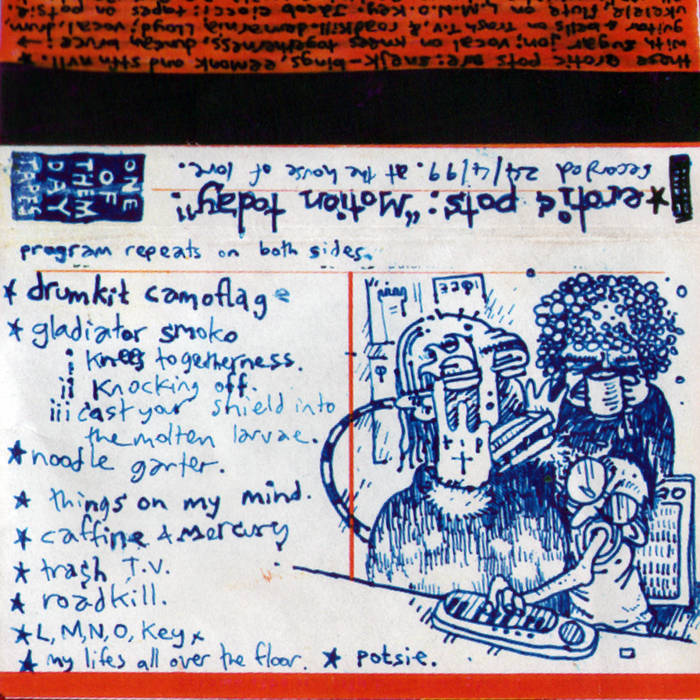 those erotic pots are: snejk-bings, eemonk and stfn nvll. *
with sugar jon; vocal on knees togetherness, duncan bruce; →
guitar & bells on Trash T.V. & roadkill. demarnia lloyd; vocal,
ukelele, flute on L.M.N.O. Key. Jacob: tapes on potsie
ONE
OF
THEM
DAY
TAPES
*erotic pots: "Motion today".
recorded 24/4/99. at the house of love.
program repeats on both sides.
* drumkit camoflage
* gladiator smoko
i knees togetherness.
ii knocking off.
iii cast your shield into
the molten larvae.
* noodle garter.
* things on my mind.
* caffine & mercury
* trash T.V.
* roadkill.
* L, M, N, O, Key *
* my lifes all over the floor. * potsie.